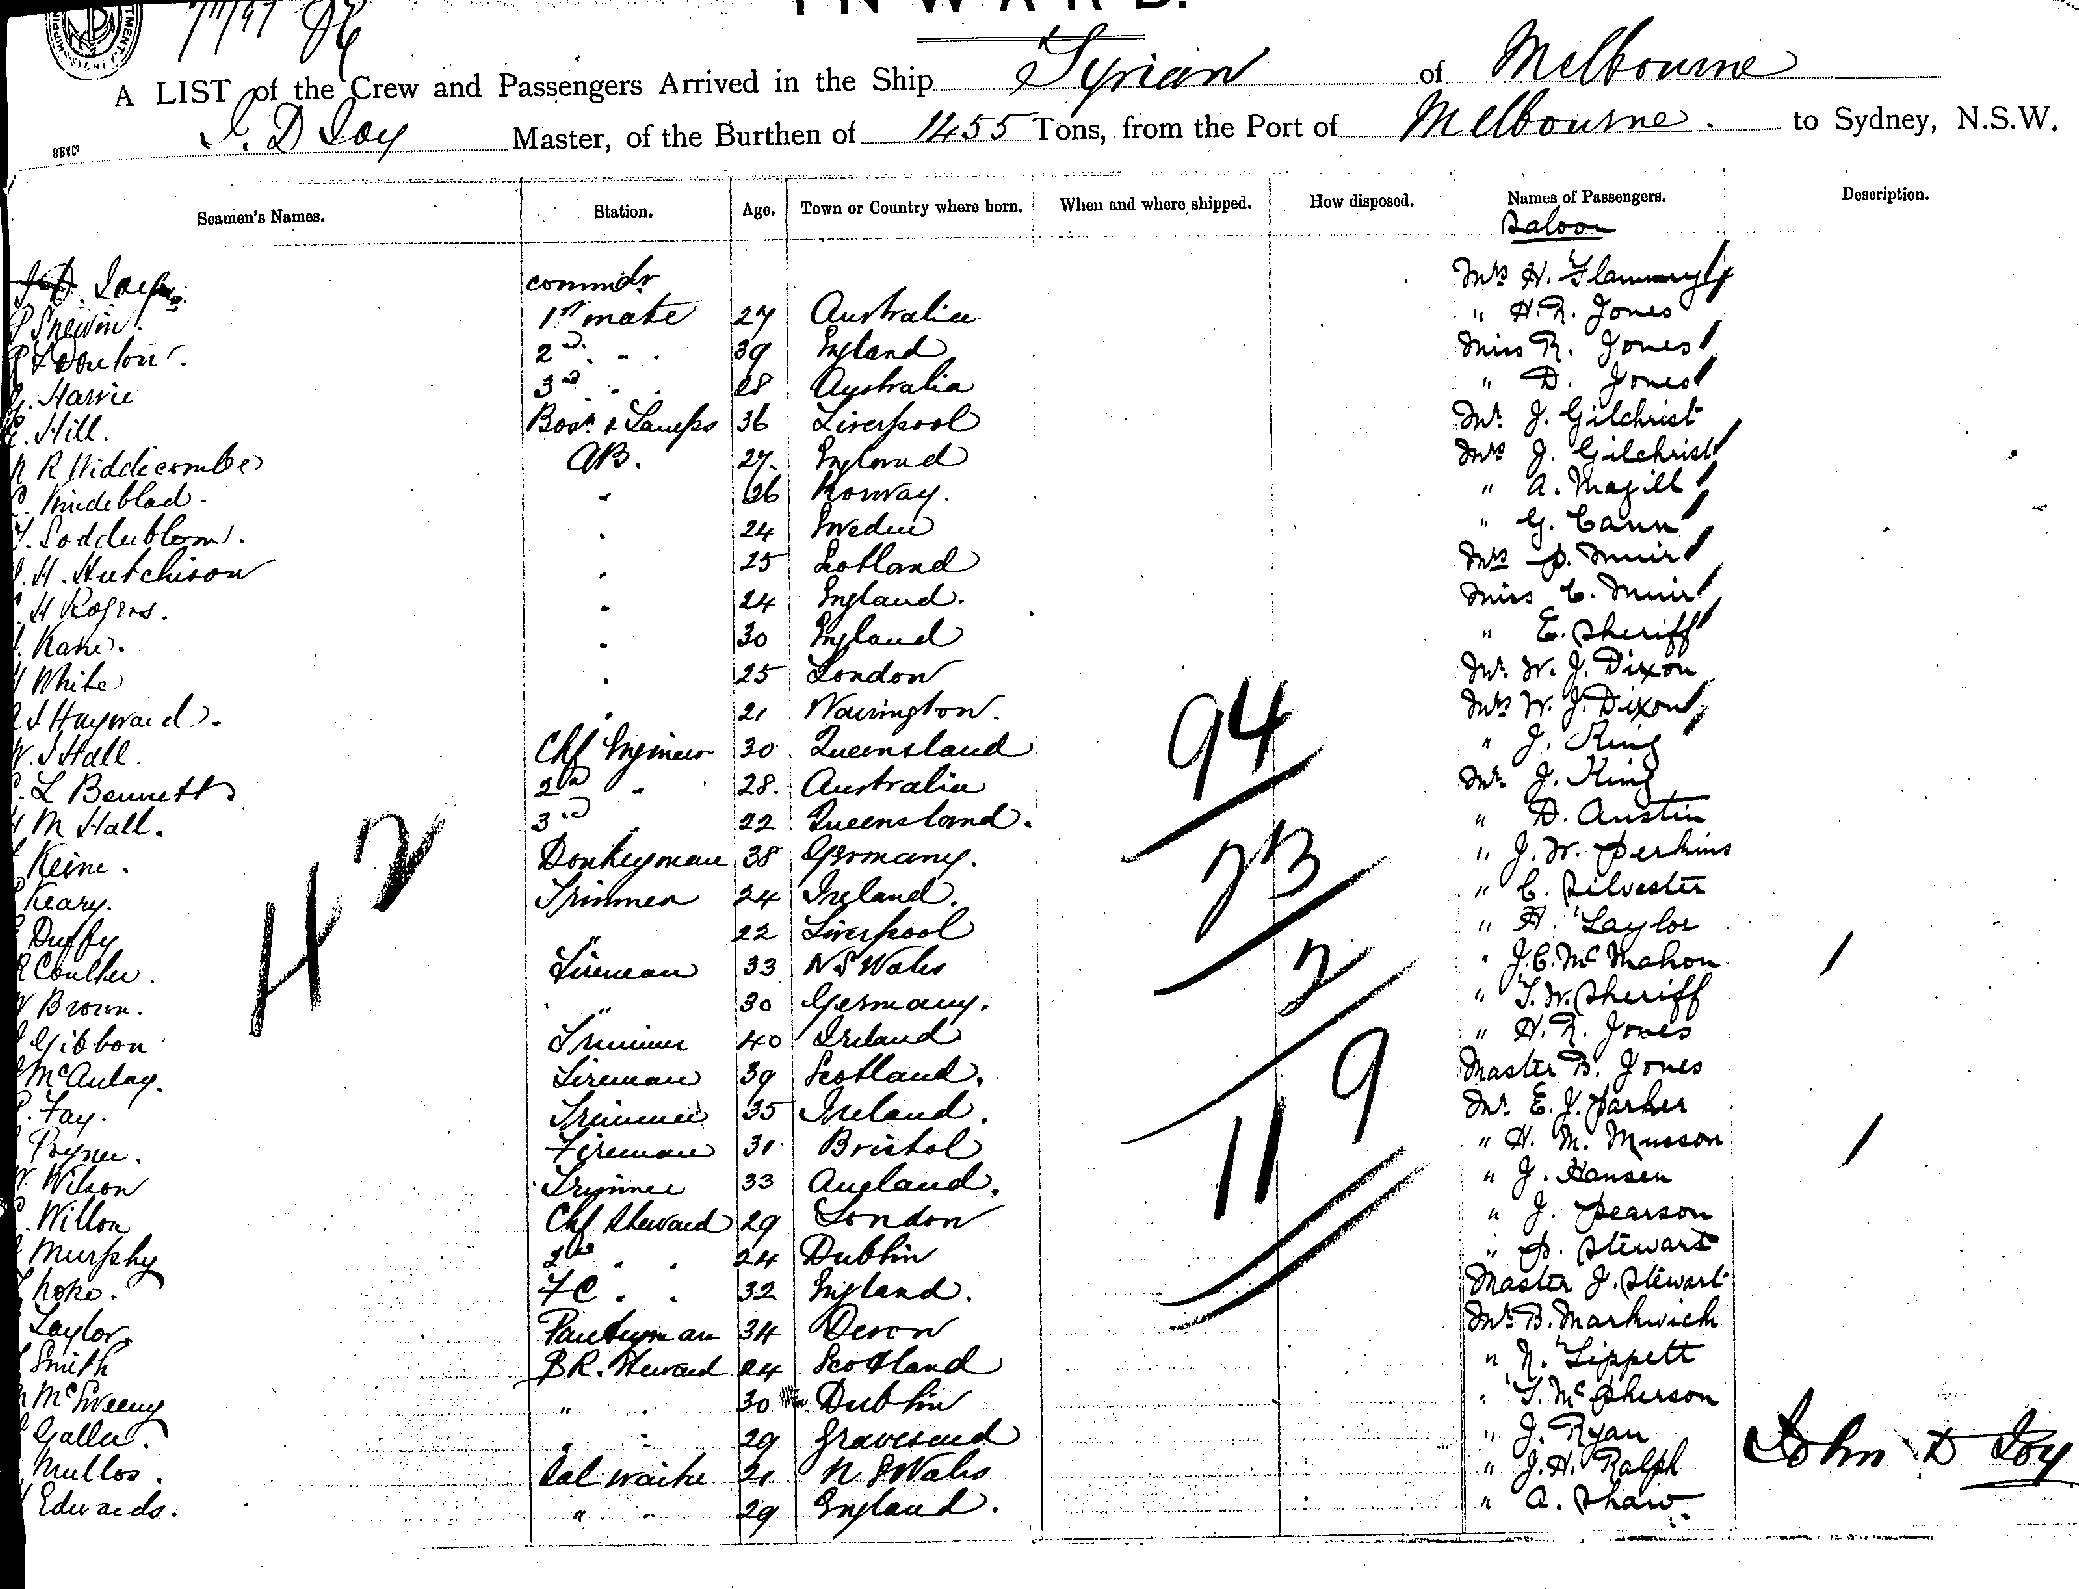 INWARD.
7/11/97
A LIST of the Crew and Passengers Arrived in the Ship Tyrian of Melbourne
J. D Joy Master, of the Burthen of 1455 Tons, from the Port of Melbourne. to Sydney, N.S.W.
Seamen's Names. Station. Age. Town or Country where born. When and where shipped. How disposed. Names of Passengers. Description.
Saloon
J D. Joy commdr Mrs H. Flannery
1st mate 27 Australia " H. R. Jones
2nd " " 39 England Miss R. Jones
Harvie 3rd " " 28 Australia " D. Jones
Hill. Bosn & Lamps 36 Liverpool Mr. J. Gilchrist
R Widdicombe AB. 27. England Mrs J. Gilchrist
Lindeblad. " 26 Norway. " A. Magill
" 24 Sweden " G. Cann
H. Hutchison " 25 Scotland Mrs P. Muir
H Rogers. " 24 England. Miss C. Muir
Kane. " 30 England " E. Sheriff
White " 25 London Mr. W. J. Dixon
Hayward. " 21 Warrington. Mrs W. J. Dixon
W. J Hall. Chf Engineer 30 Queensland " J. King
L Bennett 2nd " 28. Australia Mr. J. King
M Hall. 3rd 22 Queensland. " D. Austin
Keine. Donkeyman 38 Germany. " J. W. Perkins
Keary. Trimmer 24 Ireland. " C. Silvester
Duffy " 22 Liverpool " H. Taylor
Coulter. Fireman 33 N S Wales " J. C. McMahon
Brown. " 30 Germany. " T. W. Sheriff
Gibbon Trimmer 40 Ireland " H. R. Jones
McAulay. Fireman 39 Scotland. Master B. Jones
Fay. Trimmer 35 Ireland. Mr. E. J. Parker
Poyner. Fireman 31 Bristol " H. M. Musson
Wilson Trimmer 33 England. " J. Hansen
Willon Chf Steward 29 London " J. Pearson
Murphy 2nd " " 24 Dublin " P. Stewart
F C " " 32 England. Master J. Stewart
Taylor Pantryman 34 Devon Mr. B. Markwick
Smith B R. Steward 24 Scotland " N. Tippett
McSweeny " " 30 Dublin " T. McPherson
" " 29 Gravesend " J. Ryan
Mullos. Sal waiter 21 N S Wales " J. H. Ralph
Edwards. " " 29 England. " A. Shaw
42
94
23
2
119
John D Joy